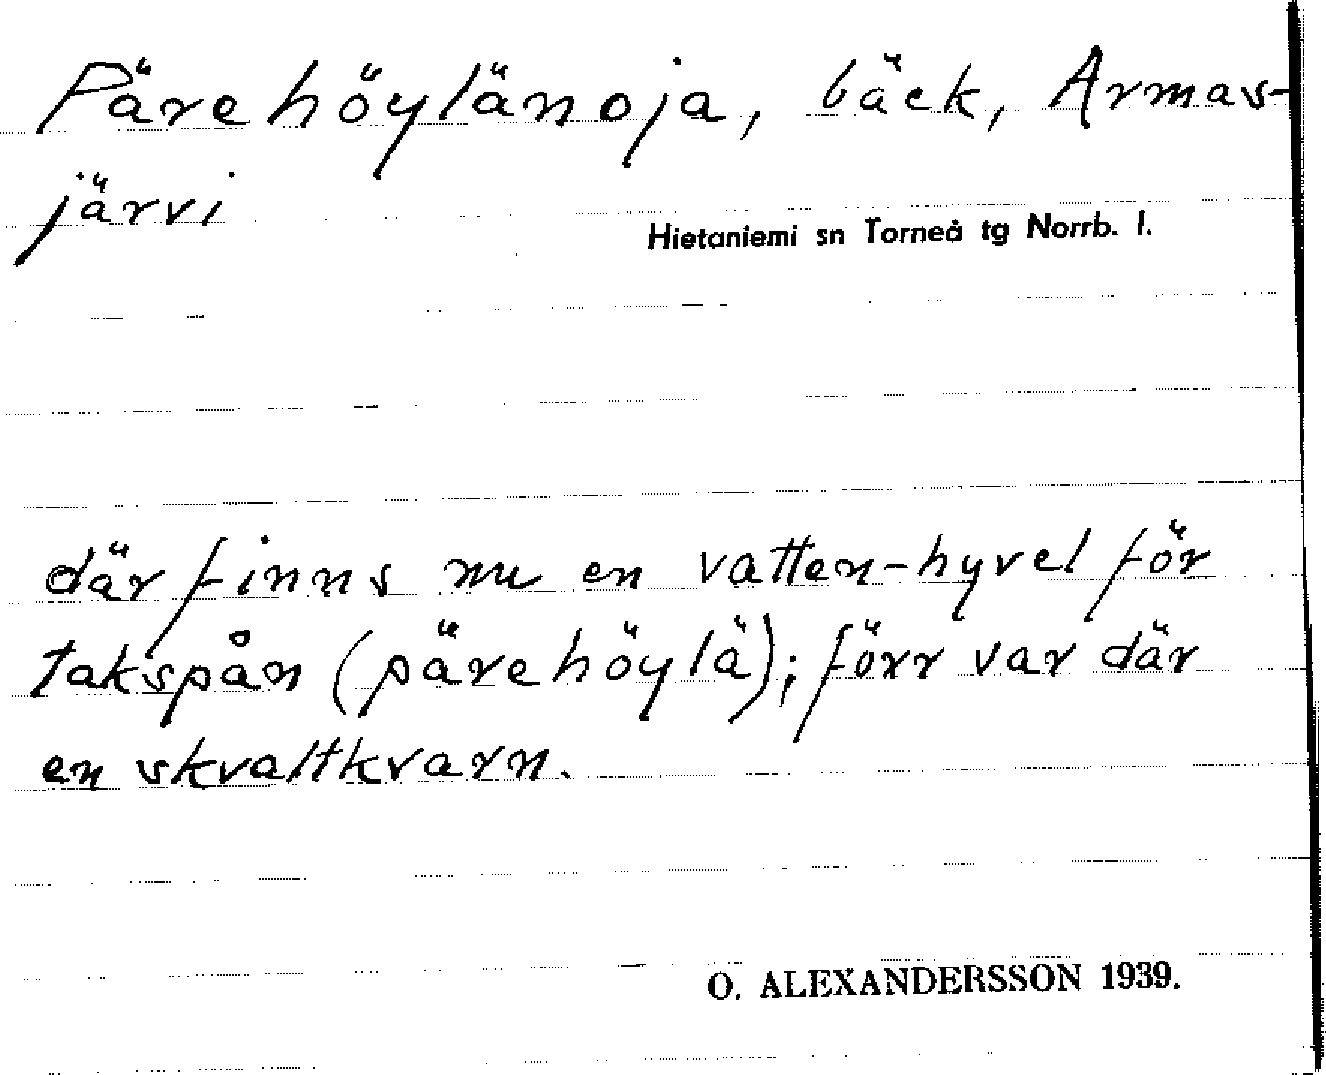 Pärehöylänoja, bäck, Armas-
järvi
Hietaniemi sn Torneå tg Norrb. l.
där finns nu en vatten-hyvel för
takspån (pärehöylä); förr var där
en skvaltkvarn.
O. ALEXANDERSSON 1939.